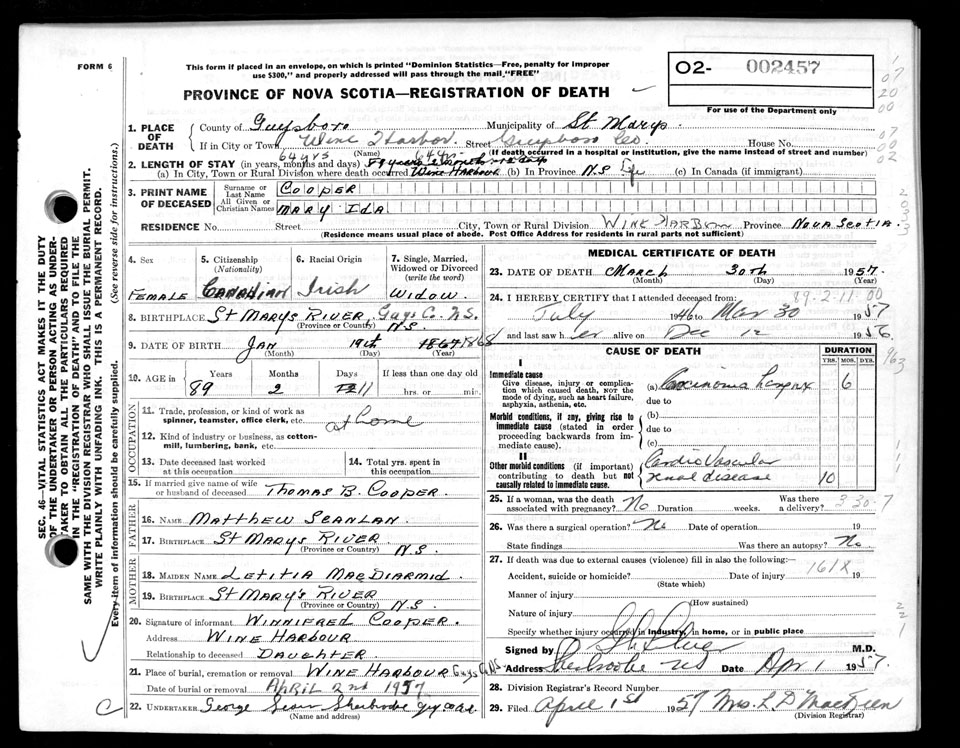 FORM 6
This form if placed in an envelope, on which is printed "Dominion Statistics—Free, penalty for improper
use $300," and properly addressed will pass through the mail "FREE"
O2- 002457
For use of the Department only
PROVINCE OF NOVA SCOTIA—REGISTRATION OF DEATH
SEC. 46—VITAL STATISTICS ACT MAKES IT THE DUTY
OF THE UNDERTAKER OR PERSON ACTING AS UNDER-
TAKER TO OBTAIN ALL THE PARTICULARS REQUIRED
IN THE "REGISTRATION OF DEATH" AND TO FILE THE
SAME WITH THE DIVISION REGISTRAR WHO SHALL ISSUE THE BURIAL PERMIT.
WRITE PLAINLY WITH UNFADING INK. THIS IS A PERMANENT RECORD.
Every item of information should be carefully supplied. (See reverse side for instructions.)
1. PLACE OF DEATH
County of Guysboro Municipality of St Marys.
If in City or Town Wine Harbor. Street Guysboro Co. House No.
(Name) (If death occurred in a hospital or institution, give the name instead of street and number)
2. LENGTH OF STAY (in years, months and days) 64 yrs
(a) In City, Town or Rural Division where death occurred Wine Harbour (b) In Province N.S. (c) In Canada (if immigrant)
3. PRINT NAME OF DECEASED
Surname or Last Name COOPER
All Given or Christian Names MARY IDA
RESIDENCE No. Street City, Town or Rural Division Wine Harbour Province Nova Scotia.
(Residence means usual place of abode. Post Office Address for residents in rural parts not sufficient)
4. Sex Female
5. Citizenship (Nationality) Canadian
6. Racial Origin Irish
7. Single, Married, Widowed or Divorced (write the word) Widow
8. BIRTHPLACE St Marys River, Guys Co. N.S.
(Province or Country) N.S.
9. DATE OF BIRTH Jan 19th 1867 1868
(Month) (Day) (Year)
10. AGE in Years Months Days If less than one day old
89 2 11 hrs. or min.
OCCUPATION
11. Trade, profession, or kind of work as spinner, teamster, office clerk, etc. at home
12. Kind of industry or business, as cotton-mill, lumbering, bank, etc.
13. Date deceased last worked at this occupation
14. Total yrs. spent in this occupation
15. If married give name of wife or husband of deceased Thomas B. Cooper.
FATHER
16. NAME Matthew Scanlan.
17. BIRTHPLACE St Marys River
(Province or Country) N.S.
MOTHER
18. MAIDEN NAME Letitia MacDiarmid.
19. BIRTHPLACE St Mary's River
(Province or Country) N.S.
20. Signature of informant Winnifred Cooper.
Address Wine Harbour
Relationship to deceased Daughter.
21. Place of burial, cremation or removal Wine Harbour Guys Co N.S
Date of burial or removal April 2nd 1957
22. UNDERTAKER George Sherbrooke Guy Co N.S.
(Name and address)
MEDICAL CERTIFICATE OF DEATH
23. DATE OF DEATH March 30th 1957.
(Month) (Day)
89-2-11-00
24. I HEREBY CERTIFY that I attended deceased from:
July 1946 to Mar 30 1957
and last saw h er alive on Dec 12 1956
CAUSE OF DEATH DURATION
YRS. MOS. DYS.
I
Immediate cause
Give disease, injury or complication which caused death, NOT the mode of dying, such as heart failure, asphyxia, asthenia, etc.
(a) Carcinoma Larynx 6
due to
Morbid conditions, if any, giving rise to immediate cause (stated in order proceeding backwards from immediate cause).
(b)
due to
(c)
II
Other morbid conditions (if important) contributing to death but not causally related to immediate cause.
Cardio Vascular
renal disease 10
25. If a woman, was the death associated with pregnancy? No Duration weeks. Was there a delivery?
3 30-7
26. Was there a surgical operation? No Date of operation 19
State findings Was there an autopsy? No.
27. If death was due to external causes (violence) fill in also the following:
Accident, suicide or homicide? Date of injury 19
161X
(State which)
Manner of injury
(How sustained)
Nature of injury
Specify whether injury occurred in Industry, in home, or in public place
Signed by M.D.
Address Sherbrooke NS Date Apr 1 1957.
28. Division Registrar's Record Number
29. Filed April 1st 1957 Mrs. L D MacKeen
(Division Registrar)